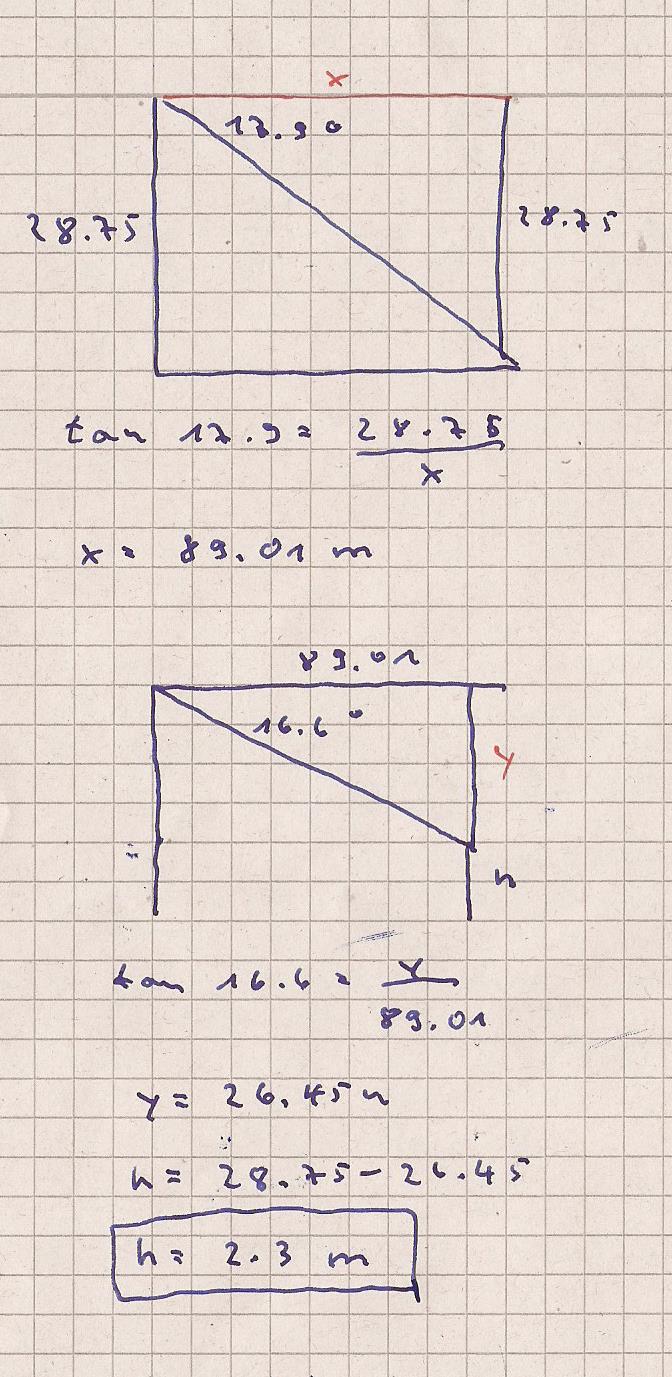 x
17.9°
28.75
28.75
tan 17.9 = 28.75
x
x = 89.01 m
89.01
16.6°
y
h
tan 16.6 = y
89.01
y = 26.45 m
h = 28.75 - 26.45
h = 2.3 m